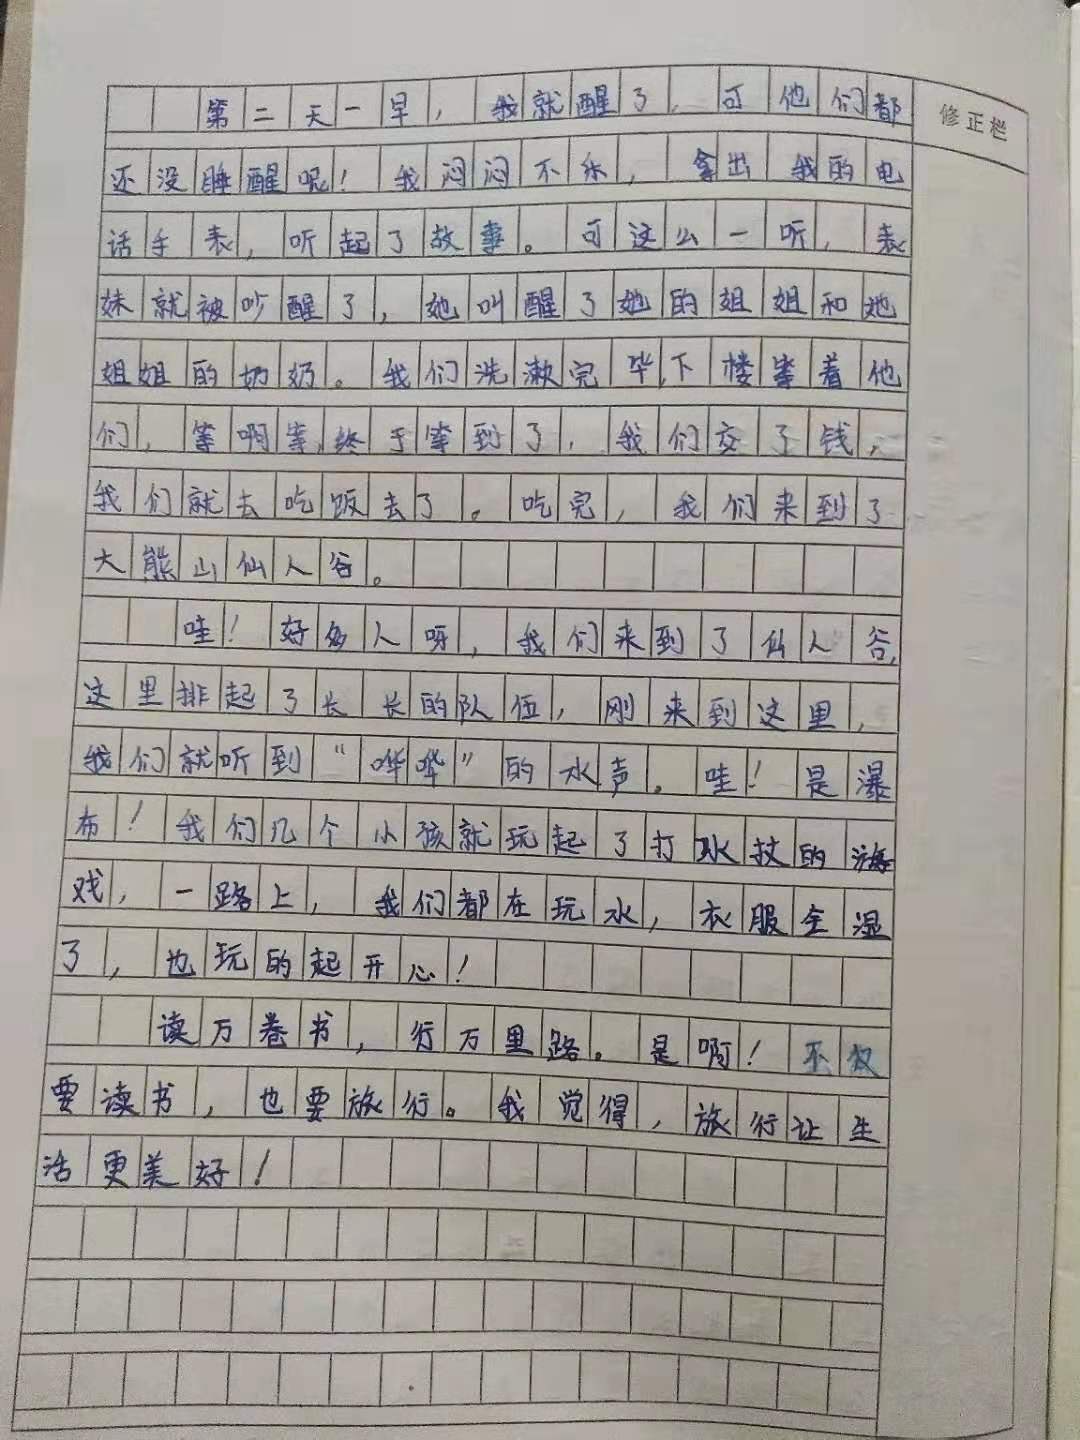 修正栏
第二天一早，我就醒了，可他们都
还没睡醒呢！我闷闷不乐，拿出我的电
话手表，听起了故事。可这么一听，表
妹就被吵醒了，她叫醒了她的姐姐和她
姐姐的奶奶。我们洗漱完毕，下楼等着他
们，等啊等，终于等到了，我们交了钱，
我们就去吃饭去了。吃完，我们来到了
大熊山仙人谷。
哇！好多人呀，我们来到了仙人谷，
这里排起了长长的队伍，刚来到这里，
我们就听到“哗哗”的水声。哇！是瀑
布！我们几个小孩就玩起了打水技的游
戏，一路上，我们都在玩水，衣服全湿
了，也玩的起开心！
读万卷书，行万里路。是啊！不仅
要读书，也要旅行。我觉得，旅行让生
活更美好！